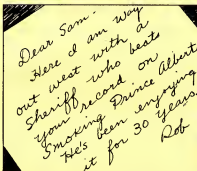 Dear Sam -
Here I am way
out west with a
Sheriff who beats
your record on
Smoking Prince Albert
He's been enjoying
it for 30 years.
Rob